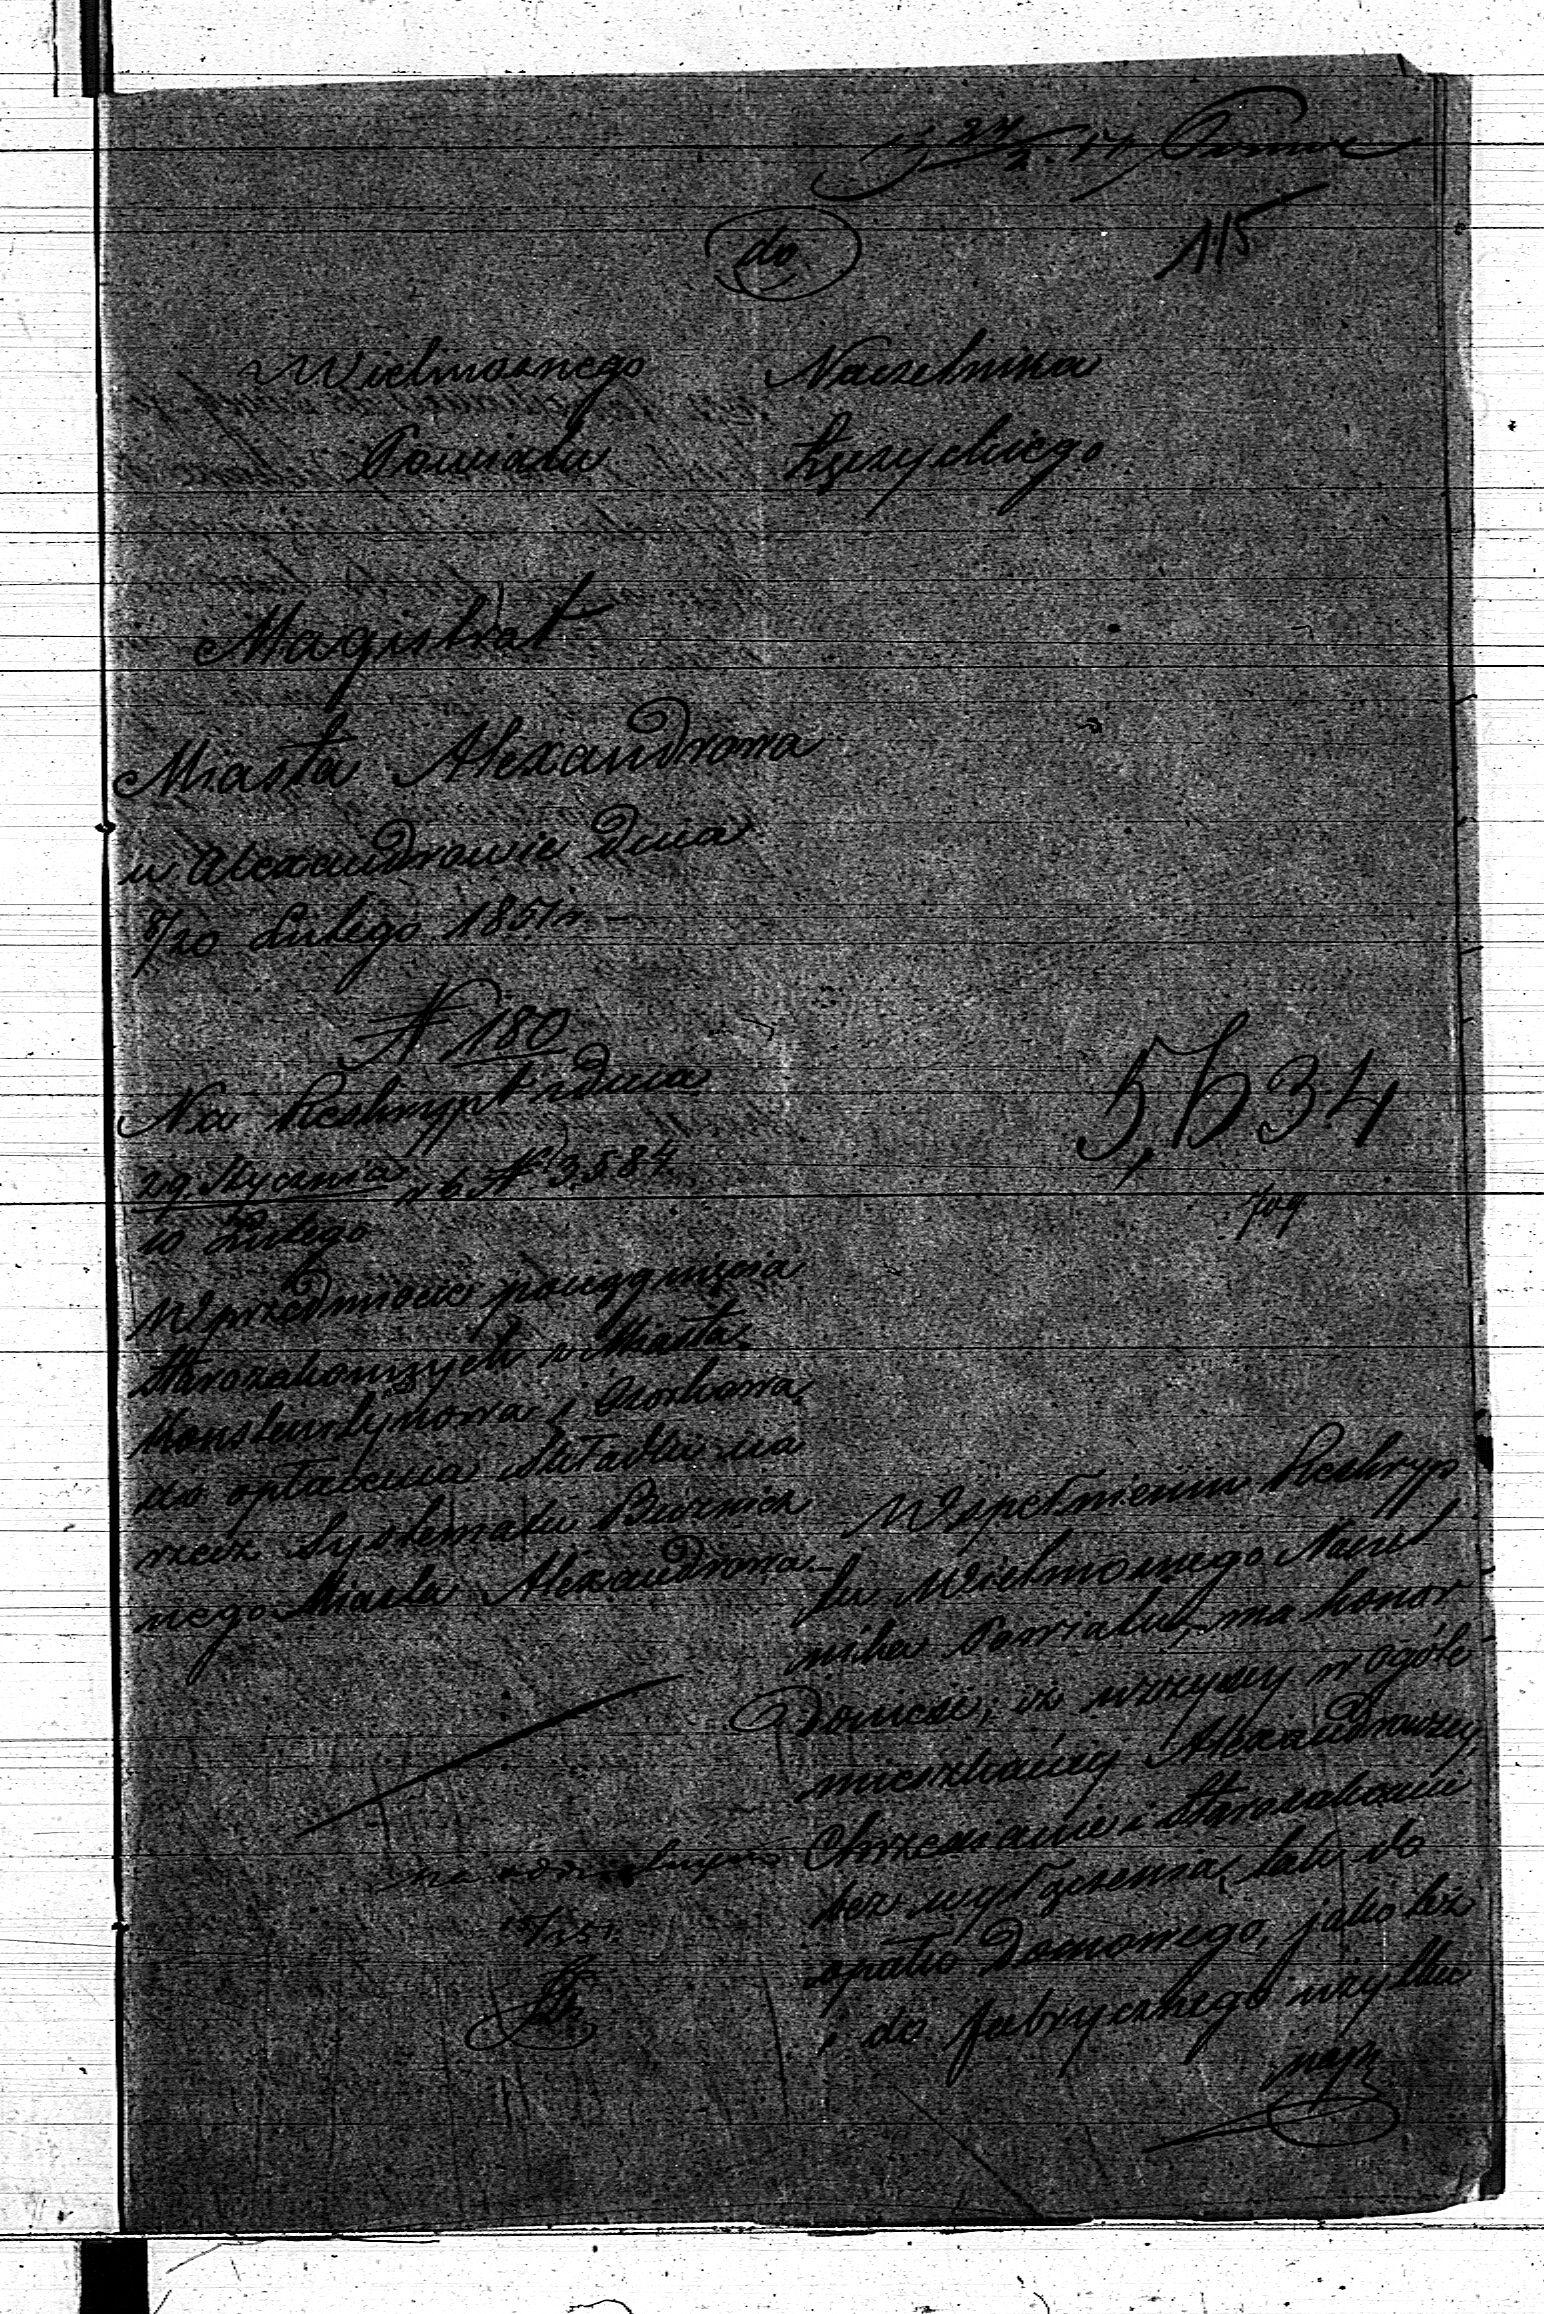 115
do
Wielmożnego Naczelnika
Powiatu Łęczyckiego
Magistrat
Miasta Alexandrowa
w Alexandrowie dnia
8/20 Lutego 1851 r.
N 180
Na Reskrypt z dnia
29 Stycznia
10 Lutego
N 3584
5,634
W przedmiocie pociągnięcia
Starozakonnych z Miasta
Konstantynowa i Ozorkowa
do opłacenia składki na
rzecz Systematu Bużnicz
nego Miasta Alexandrowa.
W spełnieniu Reskryp
tu Wielmożnego Naczel
nika Powiatu, ma honor
donieść, iż wszyscy w ogóle
mieszkańcy Alexandrowscy,
Chrześcianie i Starozakonni
bez wyłączenia, tak do
opału domowego, jako też
i do fabrycznego użytku